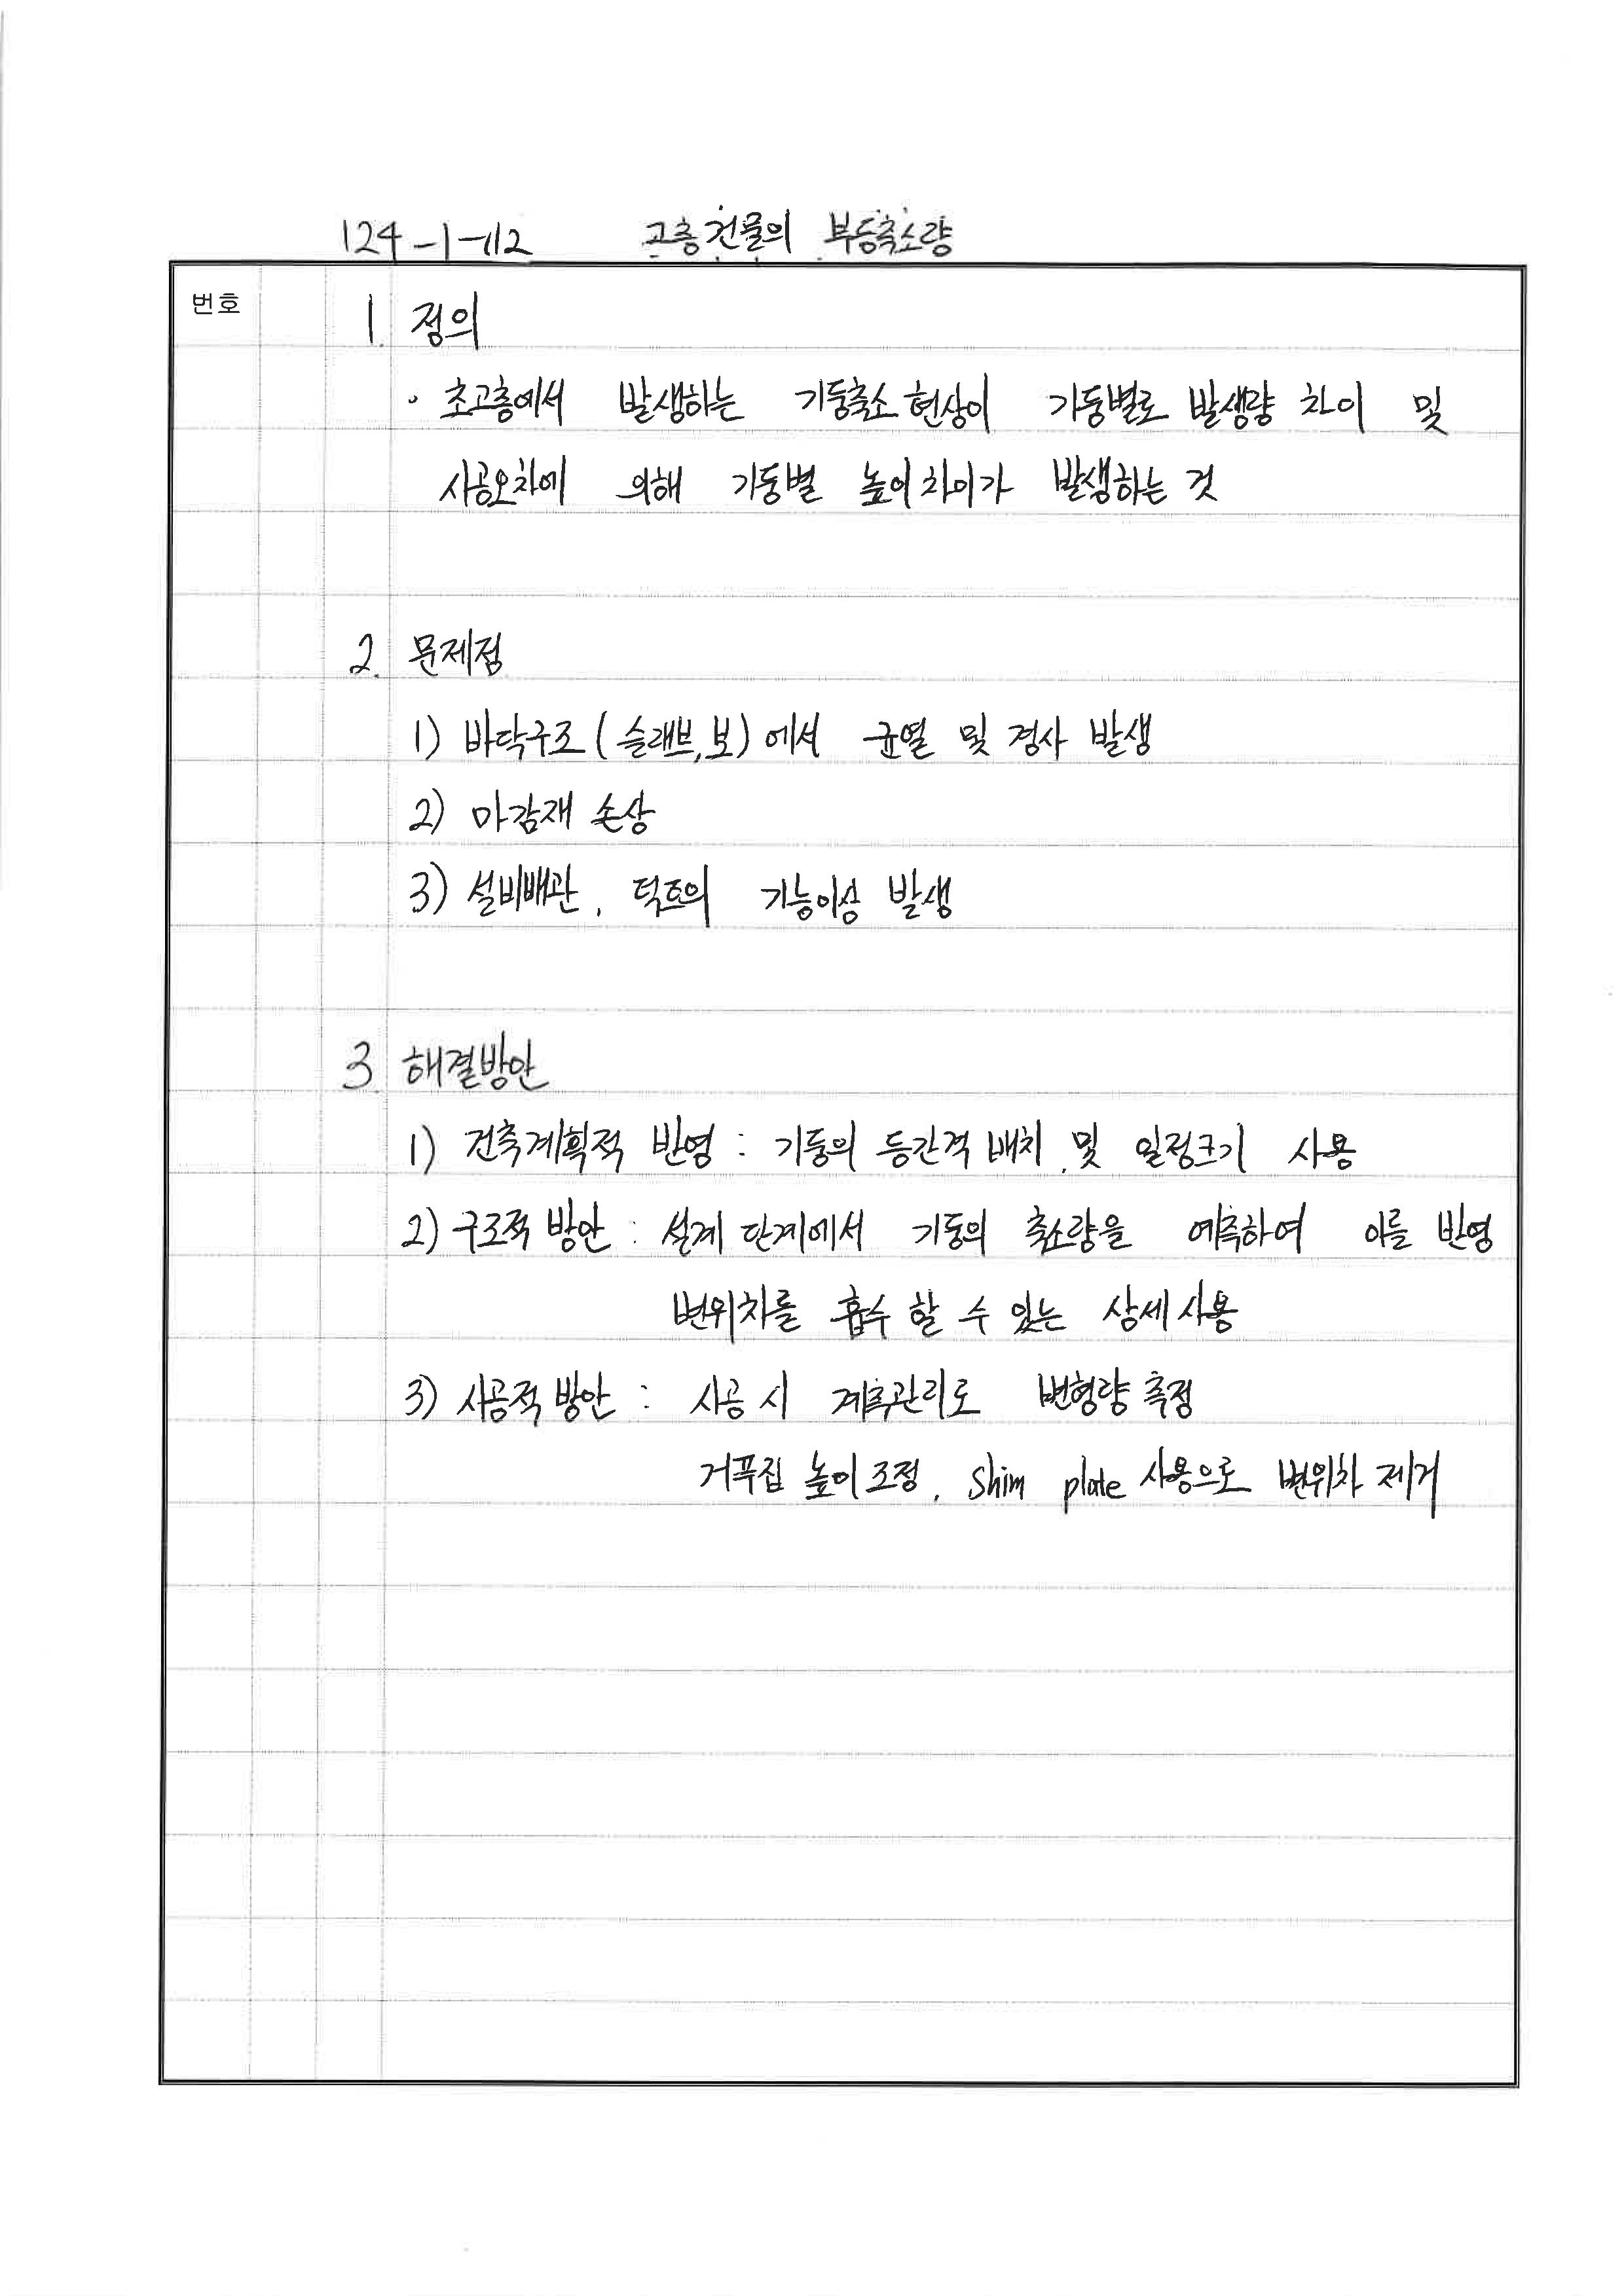 124-1-12 고층건물의 부동축소량
번호
1. 정의
· 초고층에서 발생하는 기둥축소현상이 기둥별로 발생량 차이 및
시공오차에 의해 기둥별 높이차이가 발생하는 것
2. 문제점
1) 바닥구조(슬래브,보)에서 균열 및 경사 발생
2) 마감재 손상
3) 설비배관, 덕트의 기능이상 발생
3. 해결방안
1) 건축계획적 반영 : 기둥의 등간격 배치 및 일정크기 사용
2) 구조적 방안 : 설계 단계에서 기둥의 축소량을 예측하여 이를 반영
변위차를 흡수 할 수 있는 상세사용
3) 시공적 방안 : 시공 시 계측관리로 변형량 측정
거푸집 높이조정, shim plate 사용으로 변위차 제거